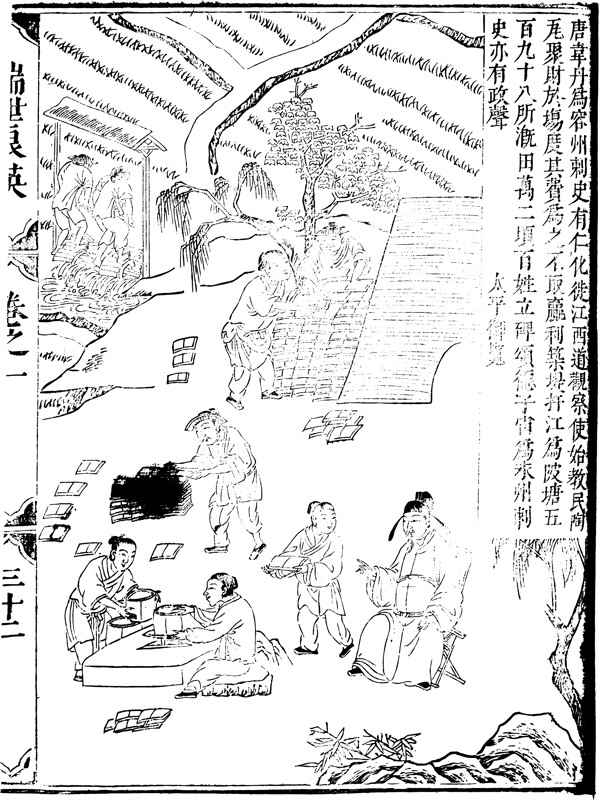 唐韋丹為容州刺史有仁化徙江西道觀察使始教民陶
瓦聚財於塲度其費為之不取贏利築堤扞江為陂塘五
百九十八所溉田萬二千頃百姓立碑頌德子宙為永州刺
史亦有政聲
太平御覽
瑞世良英
卷之一
三十二